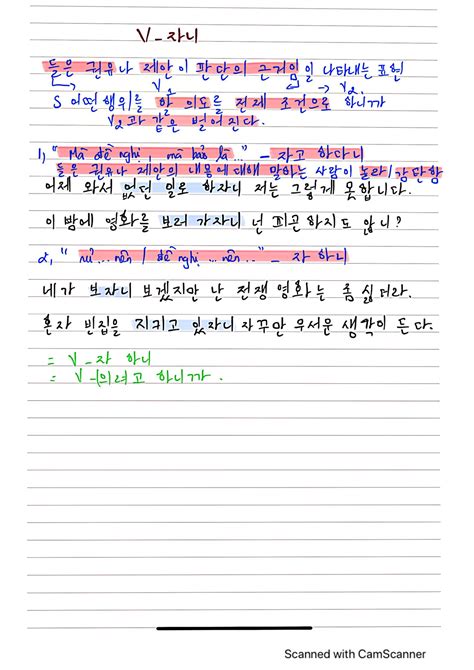 V - 자니
들은 권유나 제안이 판단의 근거임을 나타내는 표현
V₁ V₂
S 어떤 행위를 할 의도를 전제 조건으로 하니까
V₂과 같은 벌어진다.
1, " Mà đề nghị, mà bảo là..." - 자고 하다니
들은 권유나 제안의 내용에 대해 말하는 사람이 놀라/감탄함
어제 와서 없던 일로 하자니 저는 그렇게 못합니다.
이 밤에 영화를 보러 가자니 넌 피곤하지도 않니?
2, " ...nên / đề nghị ...nên.." - 자 하니
네가 보자니 보겠지만 난 전쟁 영화는 좀 싫더라.
혼자 빈집을 지키고 있자니 자꾸만 무서운 생각이 든다.
= V - 자 하니
= V -(으)려고 하니까.
Scanned with CamScanner